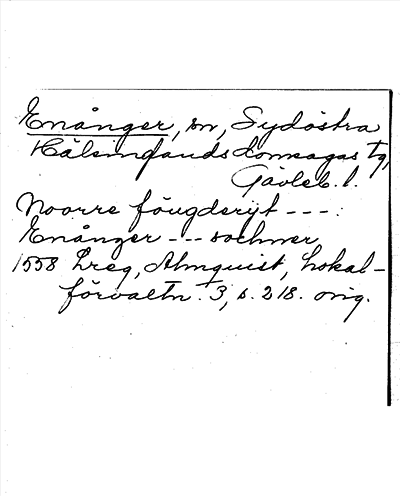 Enånger, sn, Sydöstra
Hälsinglands domsagas tg,
Gävleb. l.
Noorre fougderijt ---:
Enånger --- sochner
1558 Lreg, Almquist, Lokal-
förvaltn. 3, s. 218. orig.